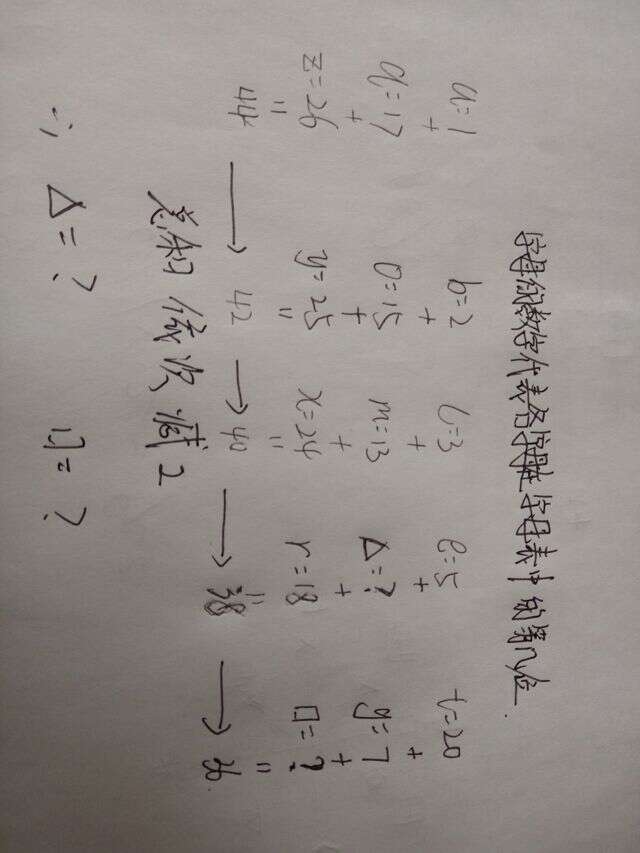 字母的数字代表各字母在字母表中的第几位.
a=1 b=2 c=3 e=5 t=20
+ + + + +
q=17 o=15 m=13 Δ=? g=7
+ + + + +
z=26 y=25 x=24 r=18 □=?
= = = = =
44 → 42 → 40 → 38 → 36.
总和 依次 减2
∴ Δ=? □=?